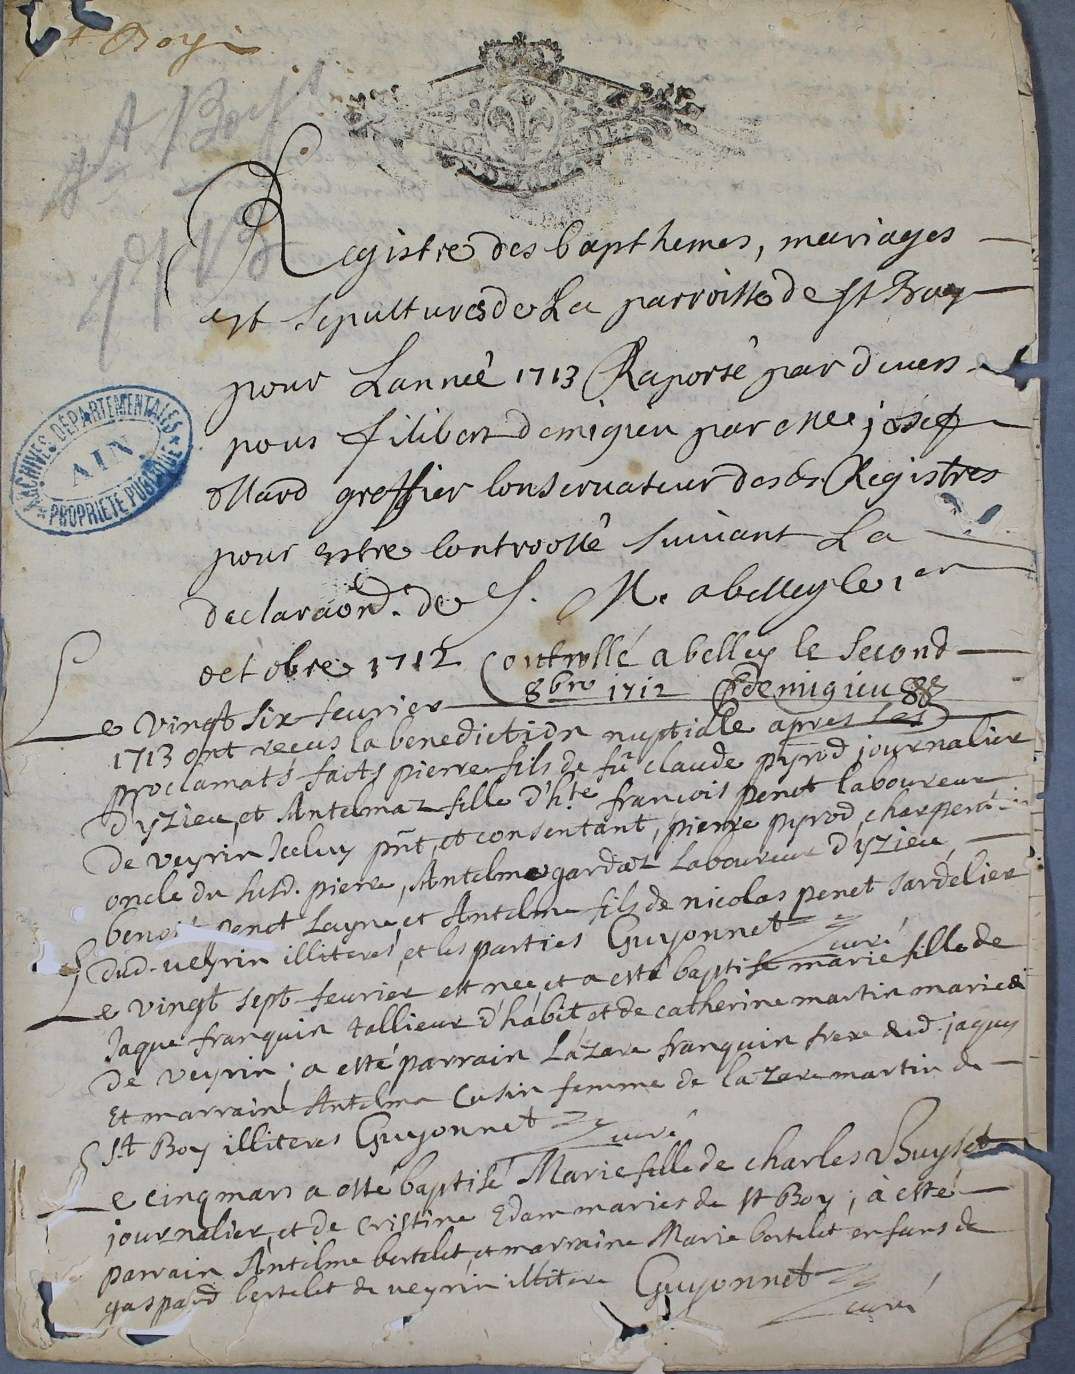 St Boys
St Boys
1713
Registre des bapthemes, mariages
est sepultures de La parroisse de st Boys
pour Lannée 1713 Raporté par devers
nous filibert demigieu par Me josef
Mard greffier Conservateur desds Registres
pour estre Controollé suivant La
declaraond. de S. M. a belley le 1er
octobre 1712 Controllé a belley le second
8bre 1712 demigieu
Le vingt six feurier
1713 ont reçus la benediction nuptialle apres les
proclamats faits pierre fils de fû claude pyrod journalier
d'yzieu, et Antelmaz fille d'h.te francois penet laboureur
de veyrin Iceluy pñt, et consentant, pierre pyrod, charpent
oncle du susd. pierre, Antelme gardaz Laboureur d'yzieu,
benoit penet Layne, et Antelme fils de nicolas penet sardelier
dud. veyrin illiteres, et les parties Guyonnet curé
Le vingt sept feurier est neé, et a esté baptisé marie fille de
Jaque franquin tallieur d'habit et de catherine martin mariés
de veyrin; a esté parrain Lazare franquin frere dud. jaques
Et marraine Antelma Cusin femme de lazare martin de
St Boy illiteres Guyonnet curé
Le cinq mars a esté baptisé Marie fille de charles Buyset
journalier, et de cristine Edam maries de st Boy; à esté
parrain Antelme bertelet, et marraine Marie bertelet enfans de
gaspard bertelet de veyrin illitere Guyonnet curé
ARCHIVES DÉPARTEMENTALES
AIN
PROPRIÉTÉ PUBLIQUE